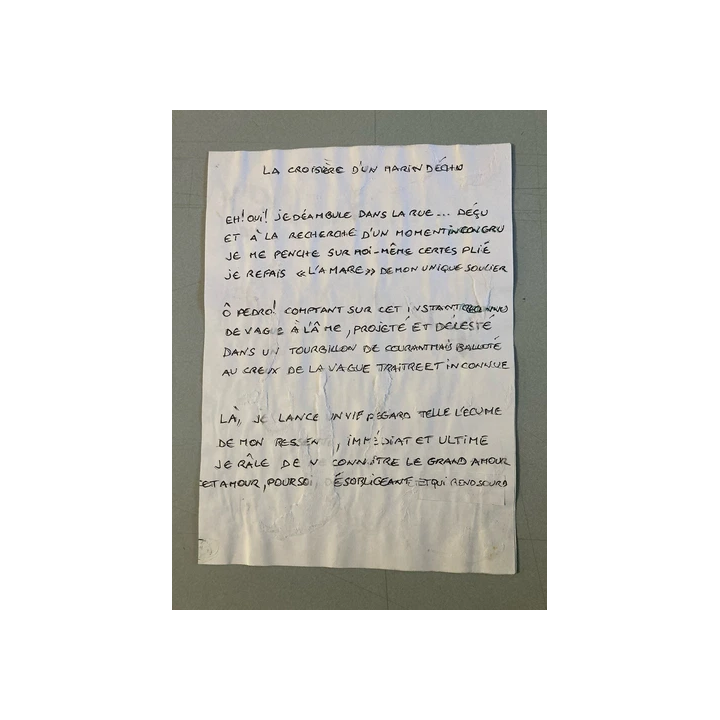 LA CROISIÈRE D'UN MARIN DÉÇHU
EH! OUI! JE DÉAMBULE DANS LA RUE... DEÇU
ET À LA RECHERCHE D'UN MOMENT INCONGRU
JE ME PENCHE SUR MOI-MÊME CERTES PLIÉ
JE REFAIS «L'AMARE» DE MON UNIQUE SOULIER
Ô PEDRO! COMPTANT SUR CET INSTANT
DE VAGUE À L'ÂME, PROJETÉ ET DÉLESTÉ
DANS UN TOURBILLON DE COURANT MAIS BALLOTÉ
AU CREUX DE LA VAGUE TRAITRE ET INCONNUE
LÀ, JE LANCE UN VIF REGARD TELLE L'ÉCUME
DE MON , IMMÉDIAT ET ULTIME
JE RÂLE DE CONNAÎTRE LE GRAND AMOUR
CET AMOUR, POUR SOI DÉSOBLIGEANT ET QUI REND SOURD